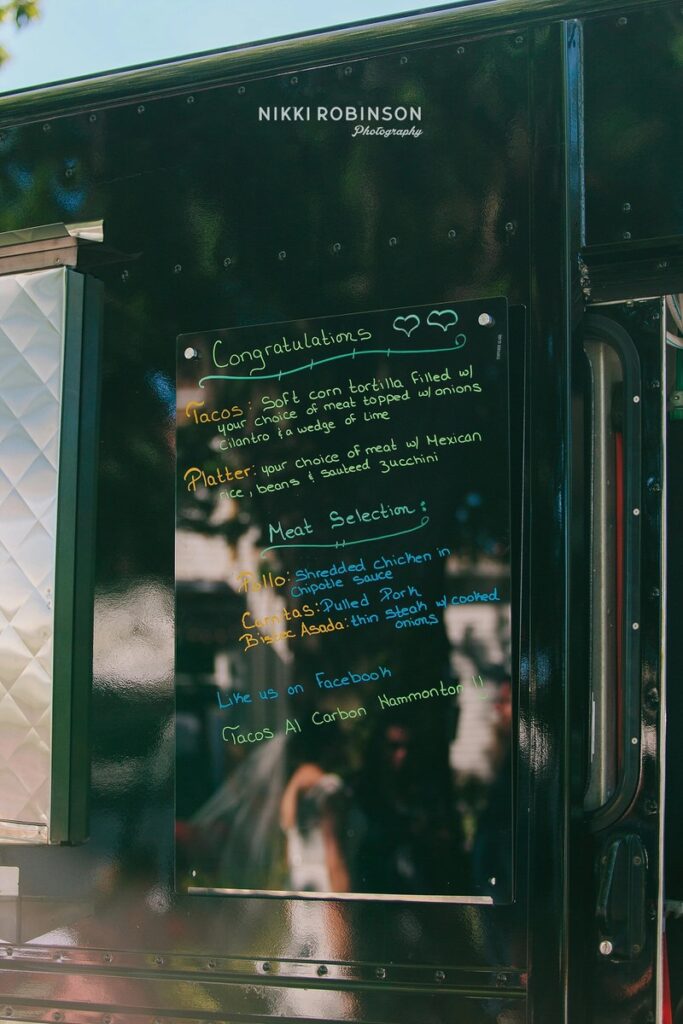 NIKKI ROBINSON
Photography
Congratulations
Tacos: Soft corn tortilla filled w/
your choice of meat topped w/ onions
Cilantro & a wedge of lime
Platter: your choice of meat w/ Mexican
rice, beans & sauteed zucchini
Meat Selection:
Pollo: Shredded chicken in
chipotle sauce
Carnitas: Pulled Pork
Asada: thin steak w/ cooked
onions
Like us on Facebook
Tacos Al Carbon Hammonton